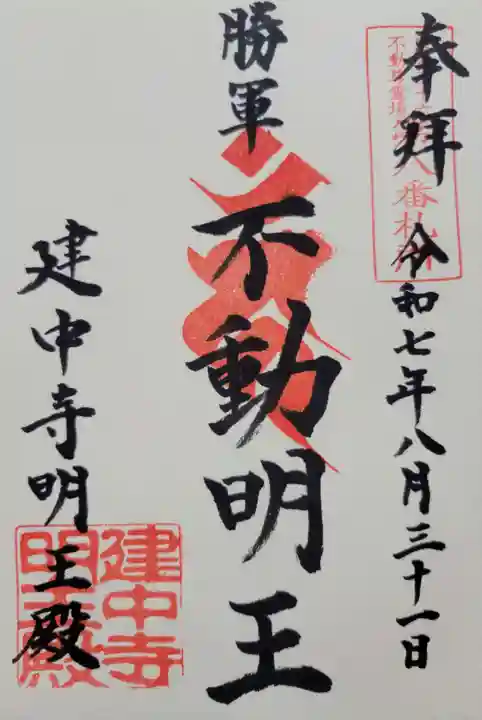 奉拝 令和七年八月三十一日
勝軍
不動明王
建中寺明王殿
建中寺
明王殿
八番札所